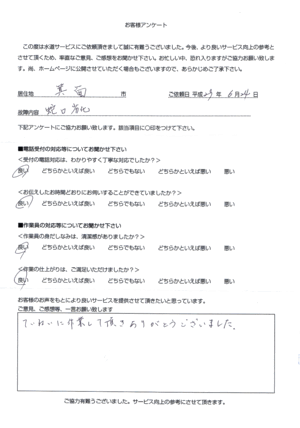 お客様アンケート
この度は水道サービスにご依頼頂きまして誠に有難うございました。今後、より良いサービス向上の参考と
させて頂くため、率直なご意見、ご感想をお聞かせ下さい。お忙しい中、恐れ入りますがご協力お願い致しま
す。尚、ホームページに公開させていただく場合もございますので、あらかじめご了承下さい。
居住地 市 ご依頼日 平成29年 6月24日
故障内容 蛇口
下記アンケートにご協力お願い致します。該当項目に〇印をつけて下さい。
■電話受付の対応等についてお聞かせ下さい
<受付の電話対応は、わかりやすく丁寧な対応でしたか?>
良い どちらかといえば良い どちらでもない どちらかといえば悪い 悪い
<お伝えしたお時間どおりにお伺いすることができていましたか?>
良い どちらかといえば良い どちらでもない どちらかといえば悪い 悪い
■作業員の対応等についてお聞かせ下さい
<作業員の身だしなみは、清潔感がありましたか?>
良い どちらかといえば良い どちらでもない どちらかといえば悪い 悪い
<作業の仕上がりは、ご満足いただけましたか?>
良い どちらかといえば良い どちらでもない どちらかといえば悪い 悪い
お客様のお声をもとにより良いサービスを提供させて頂きたいと思っています。
ご意見、ご感想等、一言お願い致します
ていねいに作業して頂きありがとうございました。
ご協力有難うございました。サービス向上の参考にさせて頂きます。